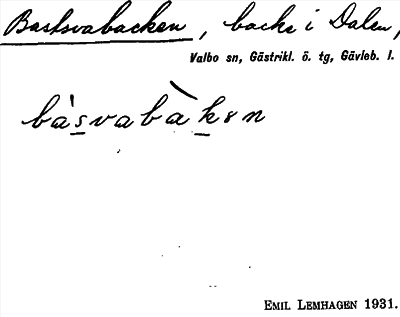 Bastsvabacken, backe i Dalen,
Valbo sn, Gästrikl. ö. tg, Gävleb. l.
bàsvabàkɛn
EMIL LEMHAGEN 1931.